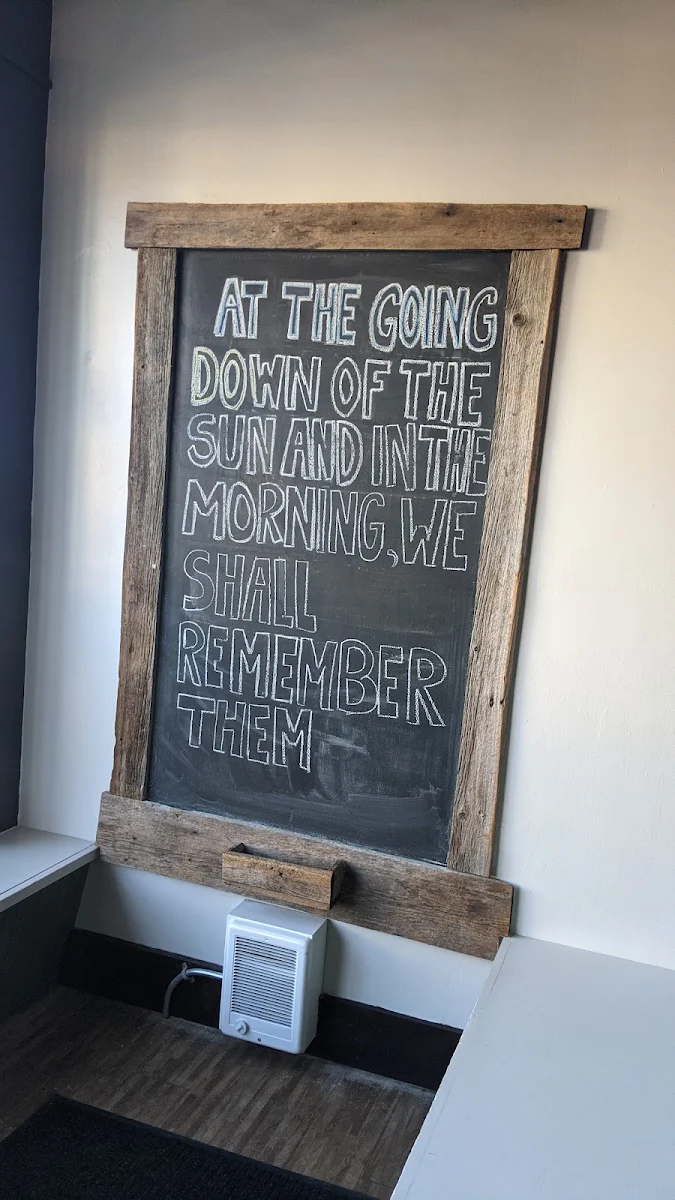 AT THE GOING
DOWN OF THE
SUN AND IN THE
MORNING, WE
SHALL
REMEMBER
THEM